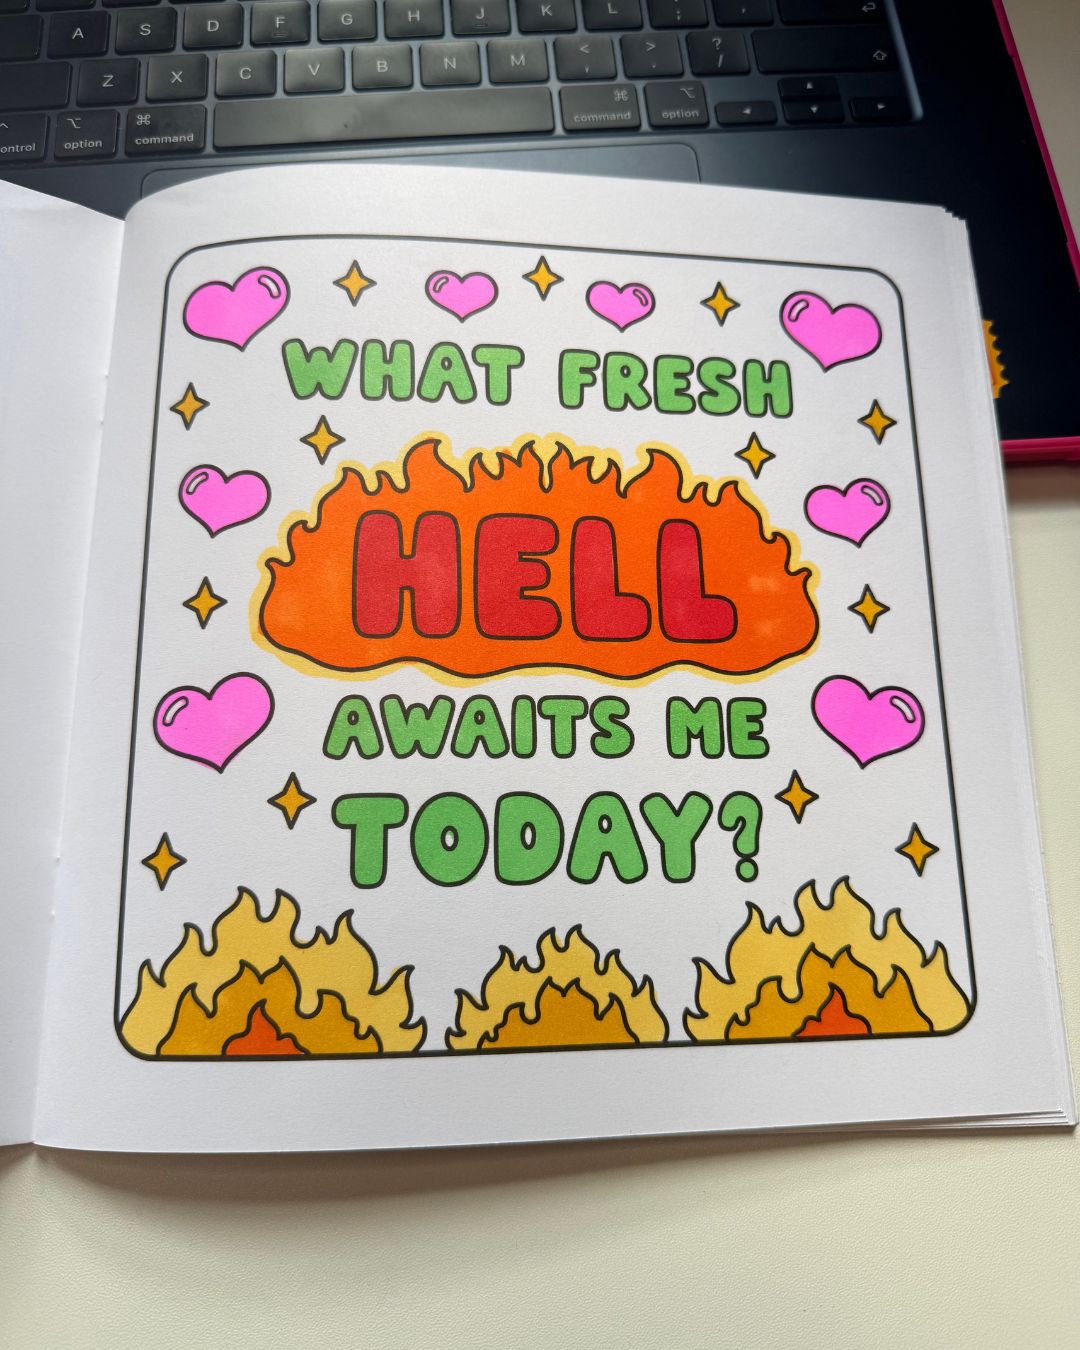 A S D F G H J K L ; ,
Z X C V B N M < > ?
, . /
^ ⌥ ⌘ ⌘ ⌥
option command command option
WHAT FRESH
HELL
AWAITS ME
TODAY?